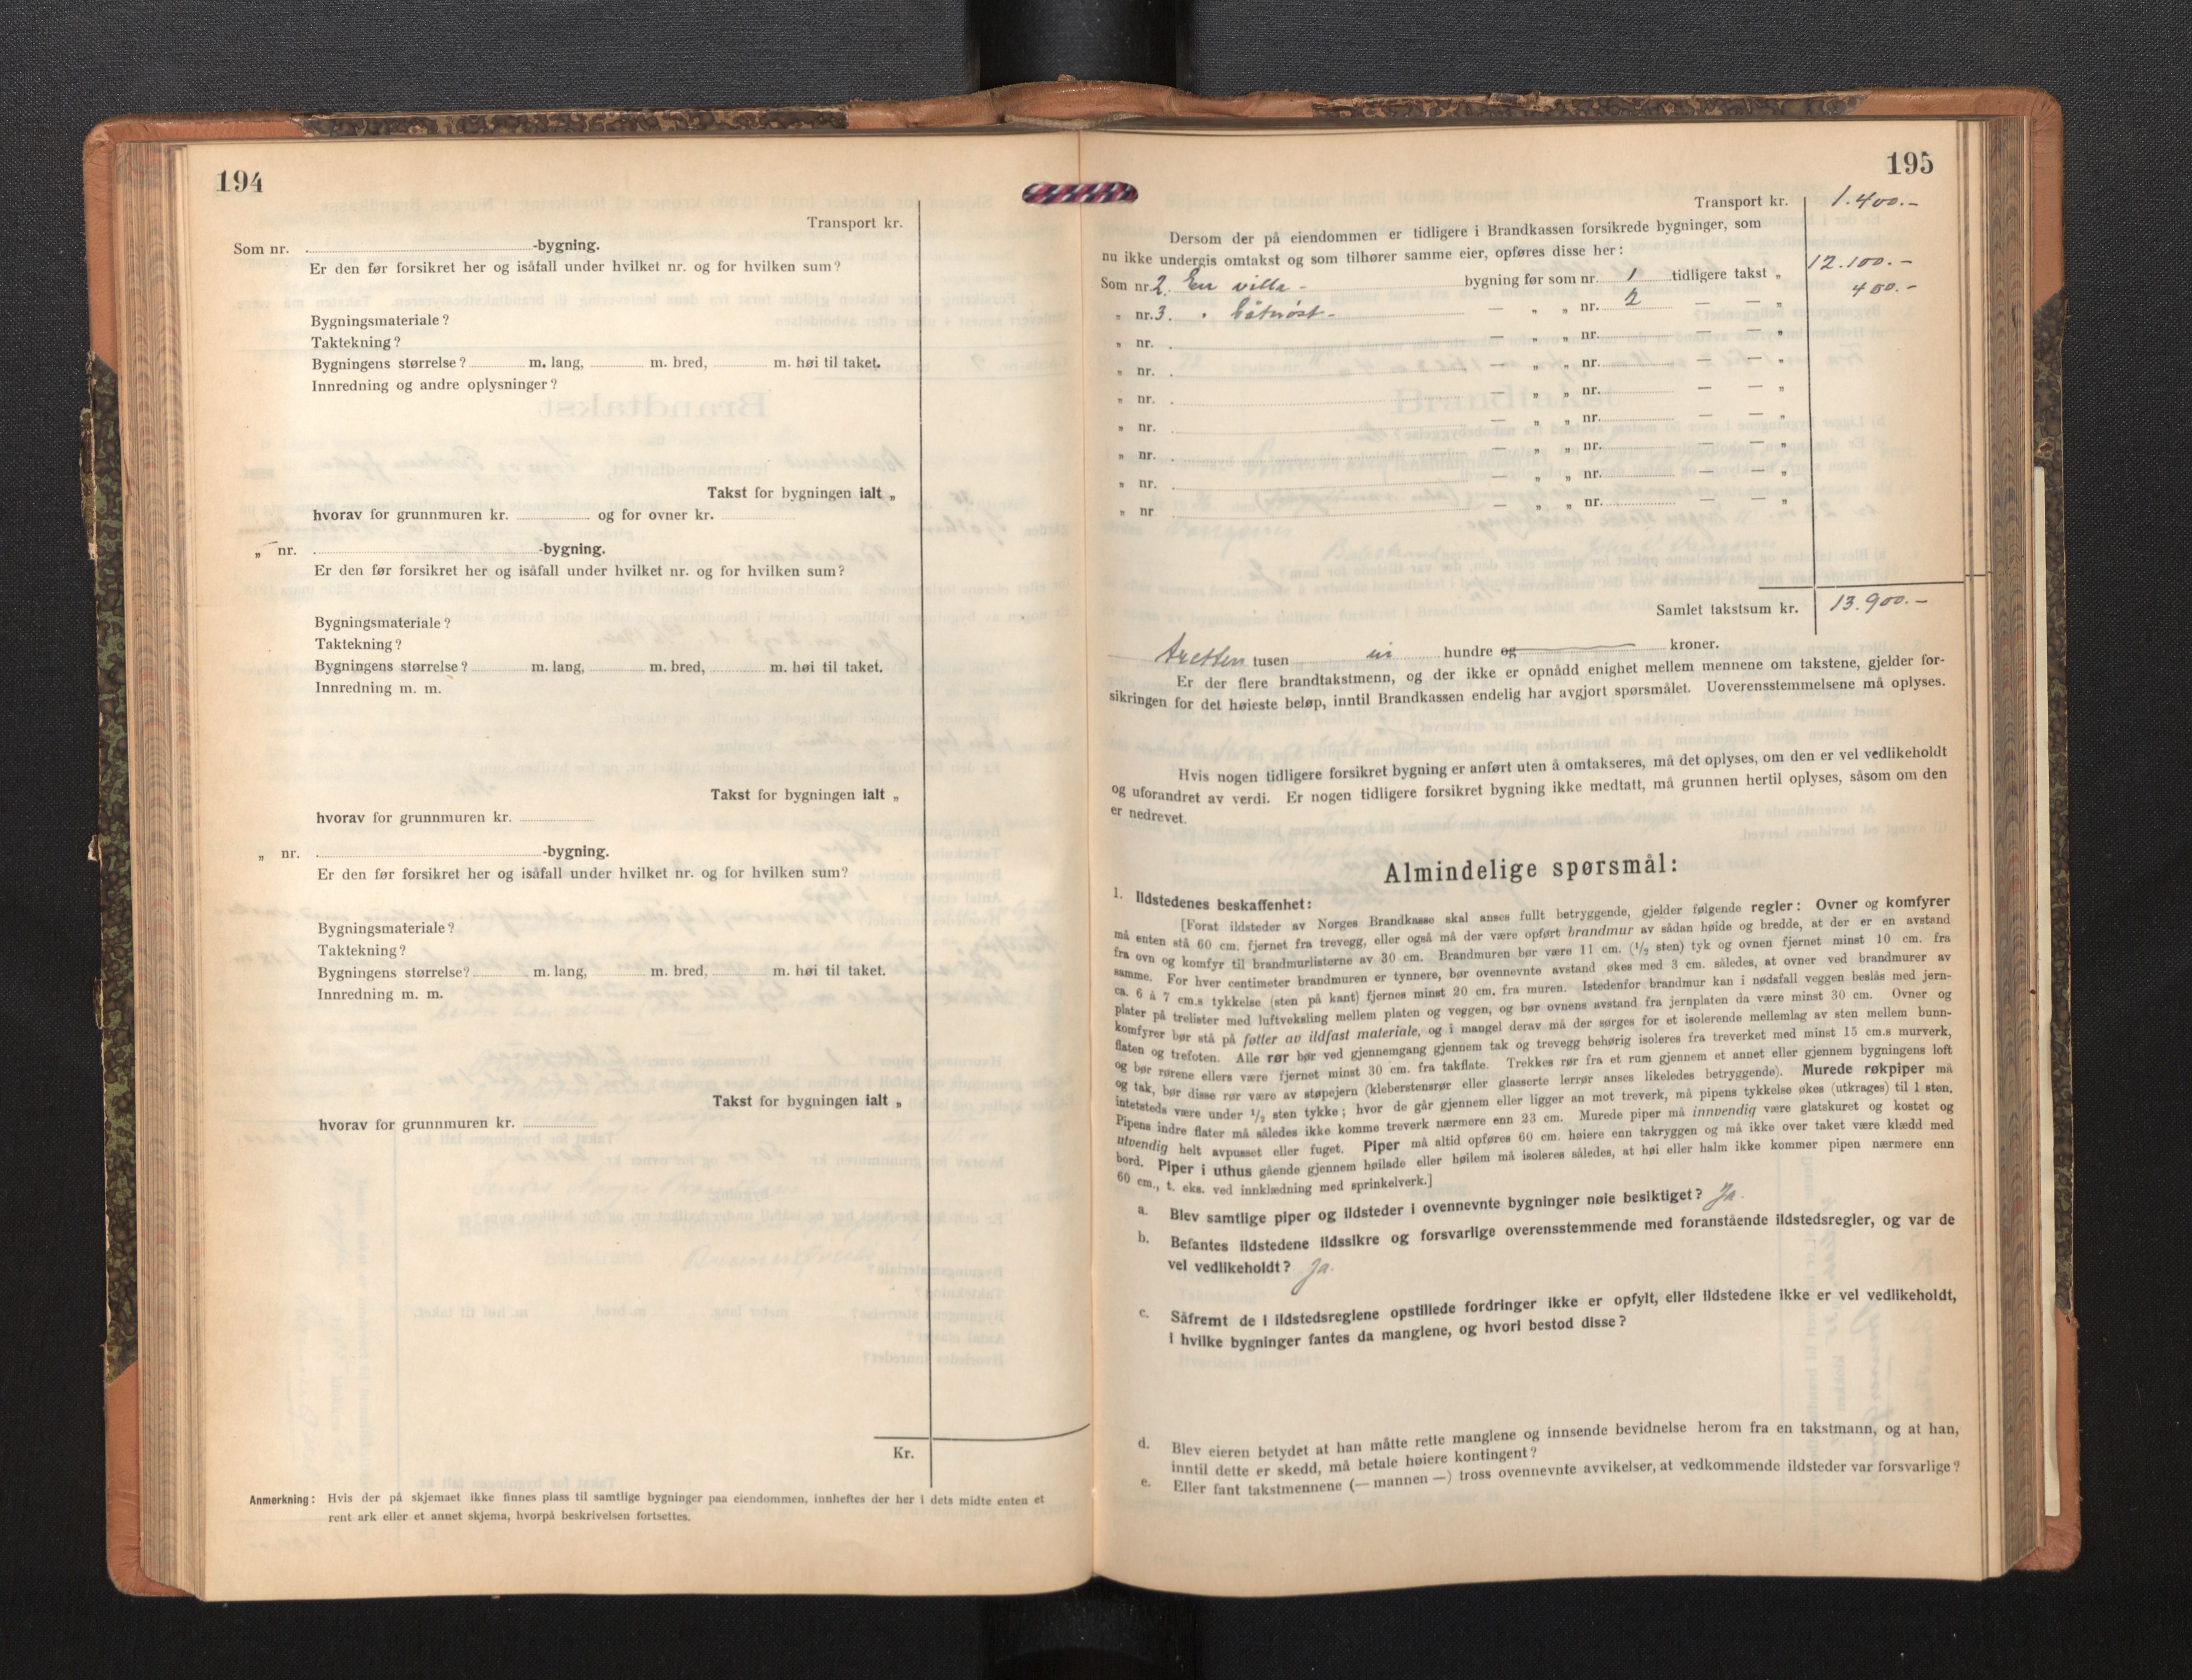 194
Transport kr.
Som nr. -bygning.
Er den før forsikret her og isåfall under hvilket nr. og for hvilken sum?
Bygningsmateriale?
Taktekning?
Bygningens størrelse? m. lang, m. bred, m. høi til taket.
Innredning og andre oplysninger?
Takst for bygningen ialt „
hvorav for grunnmuren kr. og for ovner kr.
„ nr. -bygning.
Er den før forsikret her og isåfall under hvilket nr. og for hvilken sum?
Bygningsmateriale?
Taktekning?
Bygningens størrelse? m. lang, m. bred, m. høi til taket.
Innredning m. m.
Takst for bygningen ialt „
hvorav for grunnmuren kr.
„ nr. -bygning.
Er den før forsikret her og isåfall under hvilket nr. og for hvilken sum?
Bygningsmateriale?
Taktekning?
Bygningens størrelse? m. lang, m. bred, m. høi til taket.
Innredning m. m.
Takst for bygningen ialt „
hvorav for grunnmuren kr.
Kr.
Anmerkning: Hvis der på skjemaet ikke finnes plass til samtlige bygninger paa eiendommen, innheftes der her i dets midte enten et
rent ark eller et annet skjema, hvorpå beskrivelsen fortsettes.
195
Transport kr. 1.400.-
Dersom der på eiendommen er tidligere i Brandkassen forsikrede bygninger, som
nu ikke undergis omtakst og som tilhører samme eier, opføres disse her:
Som nr. 2. En villa - bygning før som nr. 1 tidligere takst „ 12.100.-
„ nr. 3. " båtnøst - — „ „ nr. 2 — — „ 400.-
„ nr. — „ „ nr. — — „
„ nr. — „ „ nr. — — „
„ nr. — „ „ nr. — — „
„ nr. — „ „ nr. — — „
„ nr. — „ „ nr. — — „
„ nr. — „ „ nr. — — „
„ nr — „ „ nr. — — „
Samlet takstsum kr. 13.900.-
tretten tusen ni hundre og kroner.
Er der flere brandtakstmenn, og der ikke er opnådd enighet mellem mennene om takstene, gjelder for-
sikringen for det høieste beløp, inntil Brandkassen endelig har avgjort spørsmålet. Uoverensstemmelsene må oplyses.
Hvis nogen tidligere forsikret bygning er anført uten å omtakseres, må det oplyses, om den er vel vedlikeholdt
og uforandret av verdi. Er nogen tidligere forsikret bygning ikke medtatt, må grunnen hertil oplyses, såsom om den
er nedrevet.
Almindelige spørsmål:
1. Ildstedenes beskaffenhet:
[Forat ildsteder av Norges Brandkasse skal anses fullt betryggende, gjelder følgende regler: Ovner og komfyrer
må enten stå 60 cm. fjernet fra trevegg, eller også må der være opført brandmur av sådan høide og bredde, at der er en avstand
fra ovn og komfyr til brandmurlisterne av 30 cm. Brandmuren bør være 11 cm. (1/2 sten) tyk og ovnen fjernet minst 10 cm. fra
samme. For hver centimeter brandmuren er tynnere, bør ovennevnte avstand økes med 3 cm. således, at ovner ved brandmurer av
ca. 6 à 7 cm.s tykkelse (sten på kant) fjernes minst 20 cm. fra muren. Istedenfor brandmur kan i nødsfall veggen beslås med jern-
plater på trelister med luftveksling mellem platen og veggen, og bør ovnens avstand fra jernplaten da være minst 30 cm. Ovner og
komfyrer bør stå på føtter av ildfast materiale, og i mangel derav må der sørges for et isolerende mellemlag av sten mellem bunn-
flaten og trefoten. Alle rør bør ved gjennemgang gjennem tak og trevegg behørig isoleres fra treverket med minst 15 cm.s murverk,
og bør rørene ellers være fjernet minst 30 cm. fra takflate. Trekkes rør fra et rum gjennem et annet eller gjennem bygningens loft
og tak, bør disse rør være av støpejern (kleberstensrør eller glasserte lerrør anses likeledes betryggende). Murede røkpiper må
intetsteds være under 1/2 sten tykke; hvor de går gjennem eller ligger an mot treverk, må pipens tykkelse økes (utkrages) til 1 sten.
Pipens indre flater må således ikke komme treverk nærmere enn 23 cm. Murede piper må innvendig være glatskuret og kostet og
utvendig helt avpusset eller fuget. Piper må altid opføres 60 cm. høiere enn takryggen og må ikke over taket være klædd med
bord. Piper i uthus gående gjennem høilade eller høilem må isoleres således, at høi eller halm ikke kommer pipen nærmere enn
60 cm., t. eks. ved innklædning med sprinkelverk.]
a. Blev samtlige piper og ildsteder i ovennevnte bygninger nøie besiktiget? Ja.
b. Befantes ildstedene ildssikre og forsvarlige overensstemmende med foranstående ildstedsregler, og var de
vel vedlikeholdt? Ja.
c. Såfremt de i ildstedsreglene opstillede fordringer ikke er opfylt, eller ildstedene ikke er vel vedlikeholdt,
i hvilke bygninger fantes da manglene, og hvori bestod disse?
d. Blev eieren betydet at han måtte rette manglene og innsende bevidnelse herom fra en takstmann, og at han,
inntil dette er skedd, må betale høiere kontingent?
e. Eller fant takstmennene (— mannen —) tross ovennevnte avvikelser, at vedkommende ildsteder var forsvarlige?